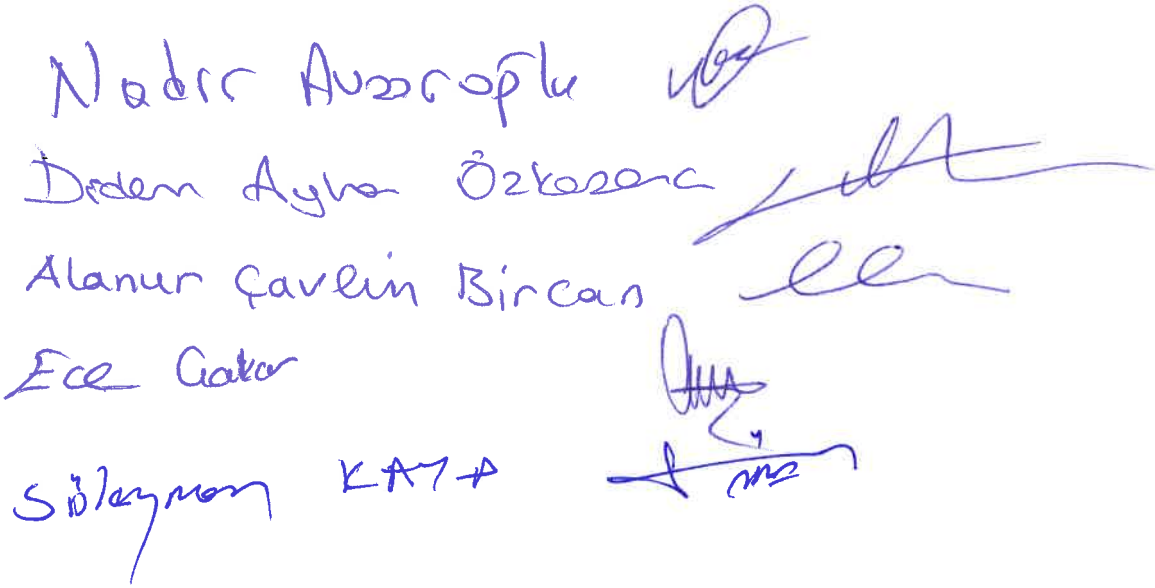 Nadir Avşaroğlu
Didem Ayhan Özkasana
Alanur Çavlin Bircan
Ece
Süleyman KAYA